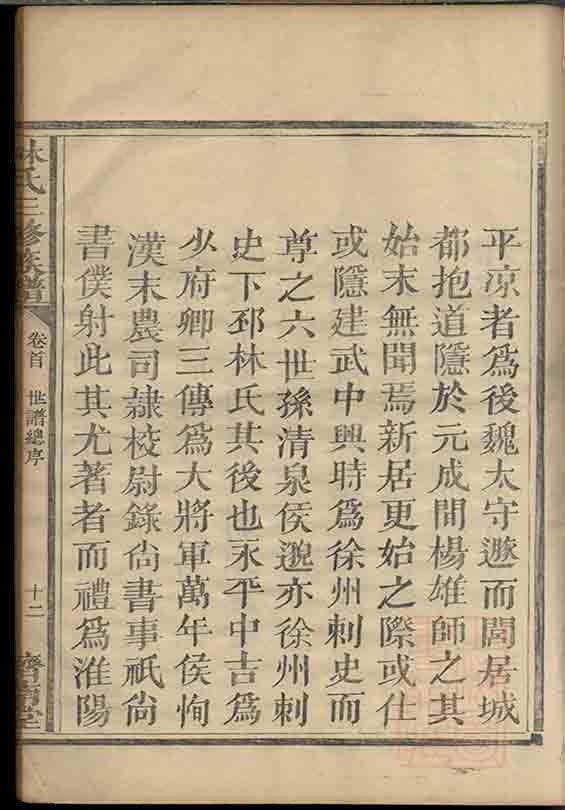 平凉者爲後魏太守遯而閭居城
都抱道隱於元成間楊雄師之其
始末無聞焉新居更始之際或仕
或隱建武中興時爲徐州刺史而
尊之六世孫清泉侯邈亦徐州刺
史下邳林氏其後也永平中吉爲
少府卿三傳爲大將軍萬年侯恂
漢末農司隷校尉錄尙書事祇尙
書僕射此其尤著者而禮爲淮陽
林氏三修族譜
卷首 世譜總序
十二
濟南堂